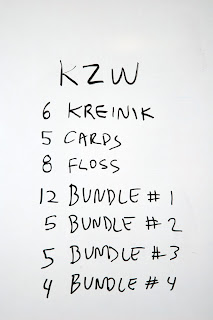 KZW
6 KREINIK
5 CARDS
8 FLOSS
12 BUNDLE # 1
5 BUNDLE # 2
5 BUNDLE # 3
4 BUNDLE # 4